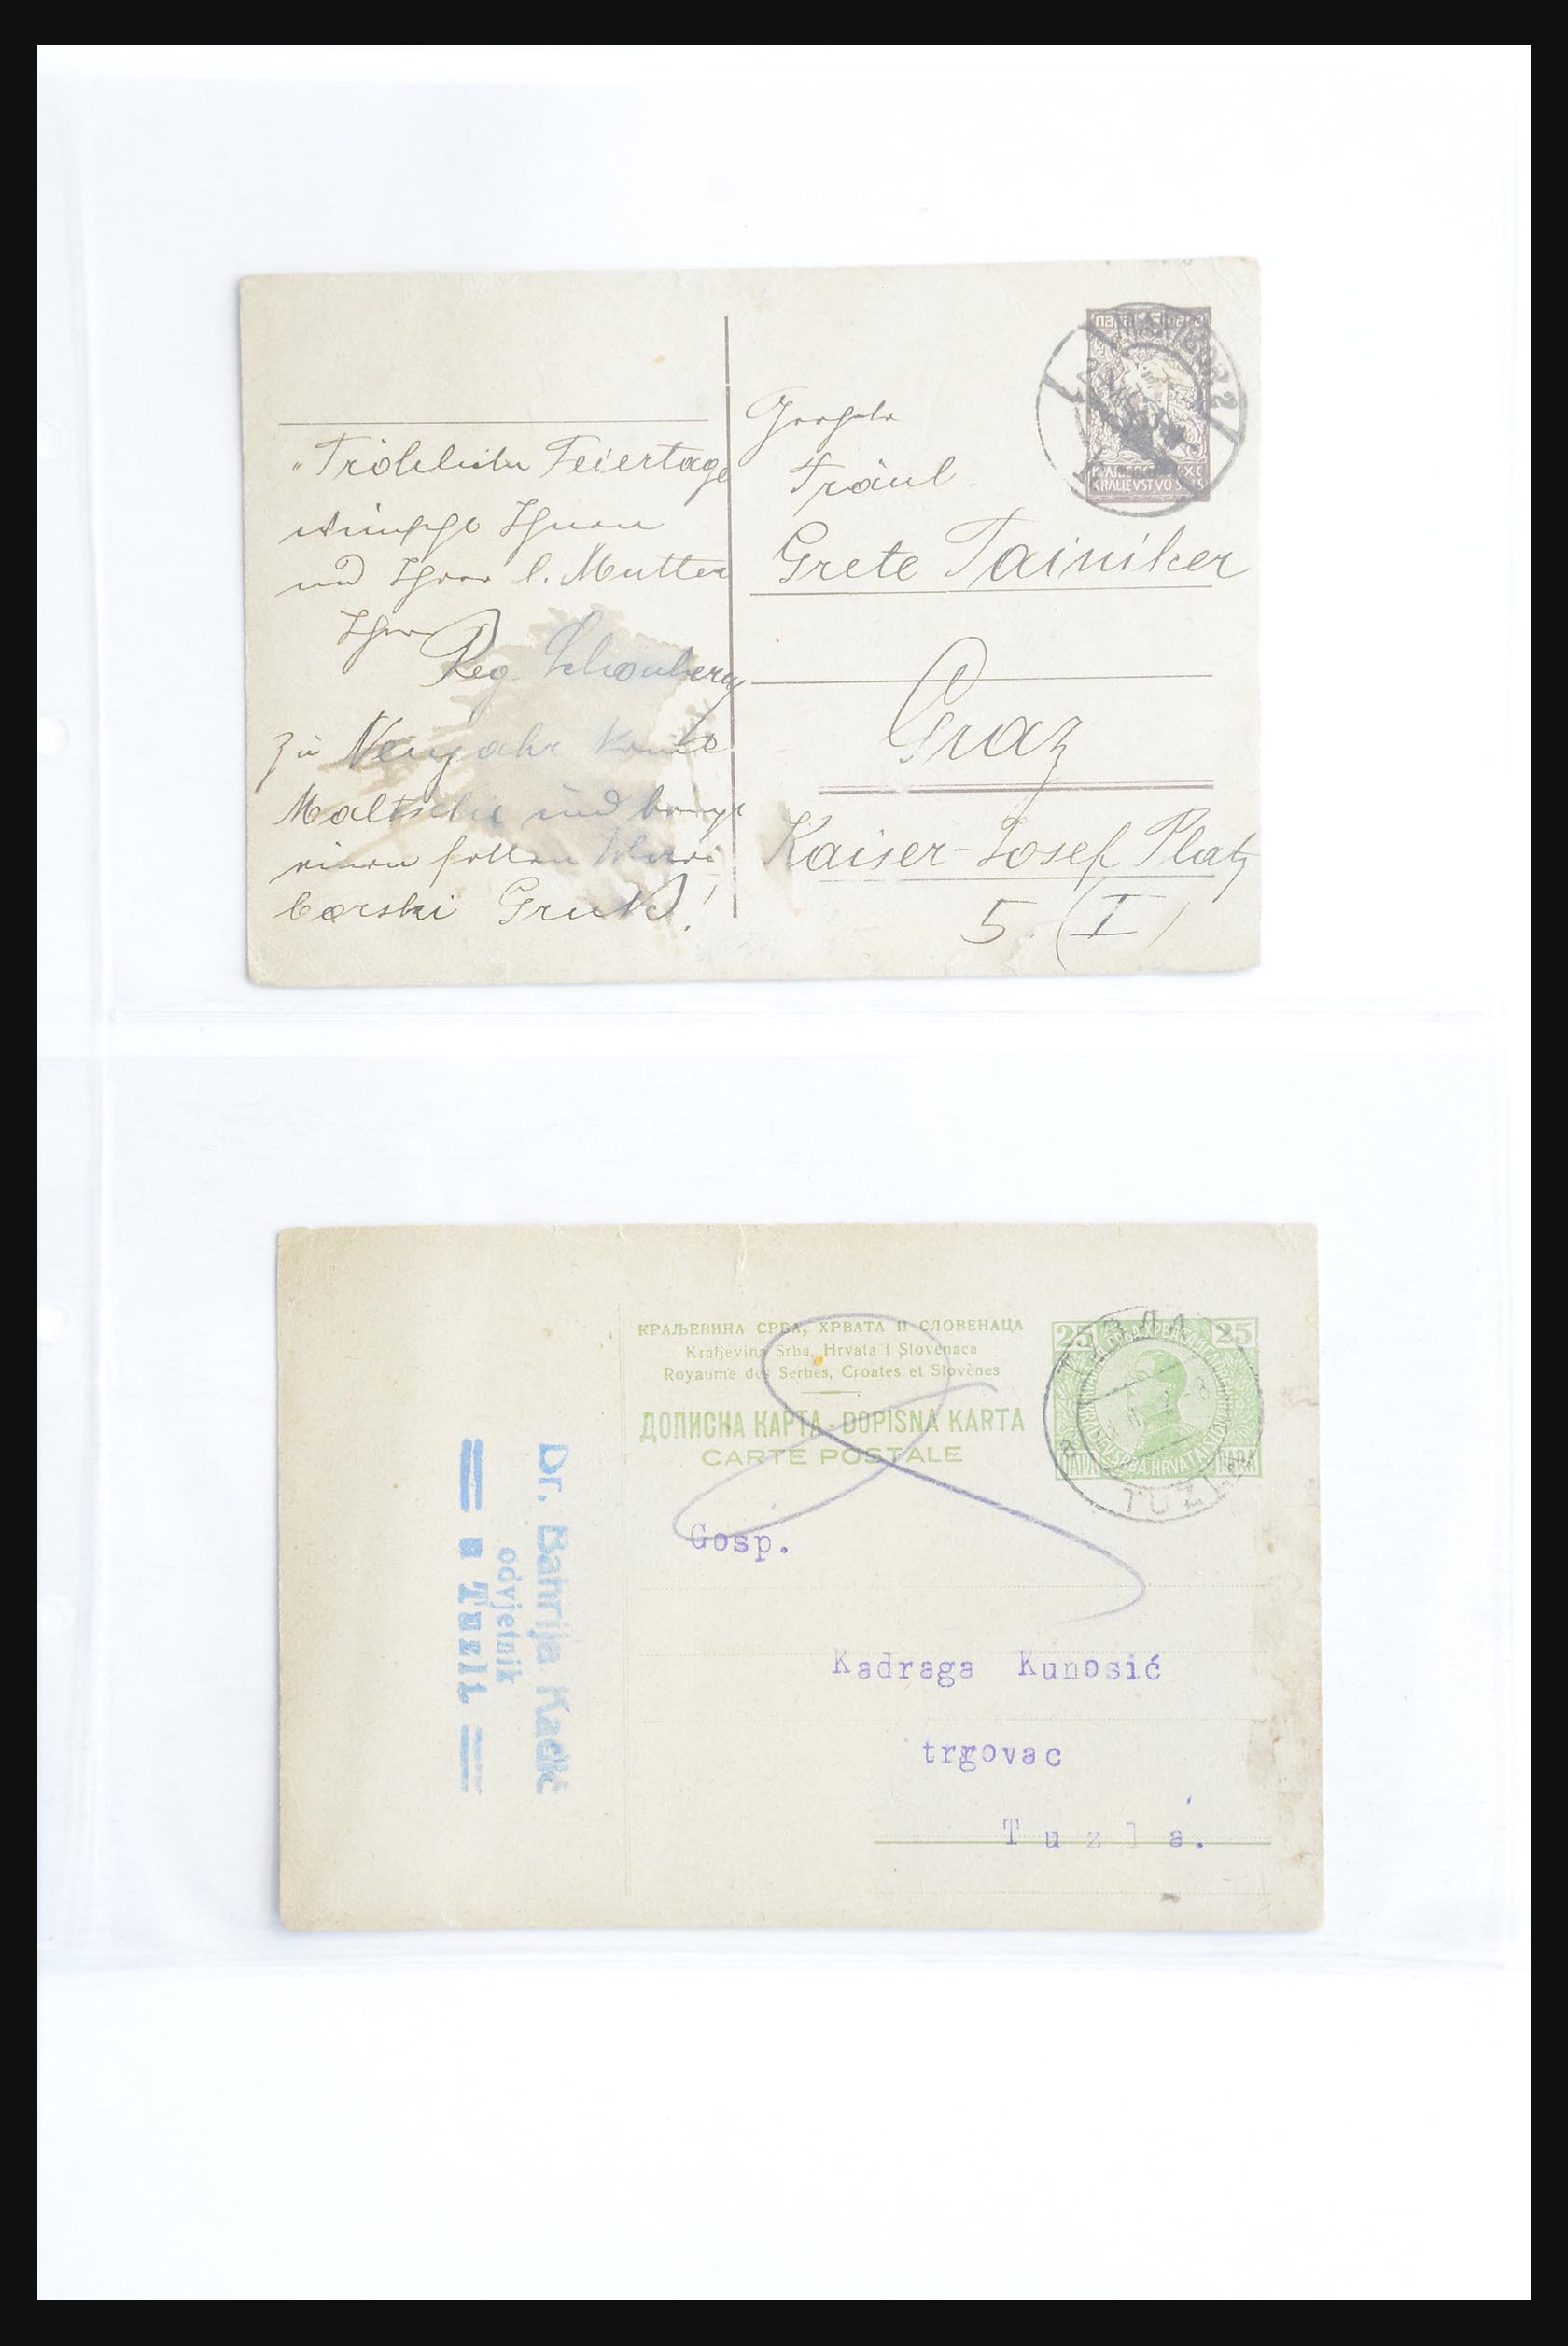 "Fröhliche Feiertage
wünscht Ihnen
und Ihrer l. Mutter
Ihr
Reg. Schönberg
Zu Neujahr kommt
und bringt
einen fetten
borski Gruß!
KRALJEVSTVO SHS
Fräul.
Grete Tainiker
Graz
Kaiser-Josef Platz
5. (I)
КРАЉЕВИНА СРБА, ХРВАТА И СЛОВЕНАЦА
Kraljevina Srba, Hrvata i Slovenaca
Royaume des Serbes, Croates et Slovènes
ДОПИСНА КАРТА - DOPISNA KARTA
CARTE POSTALE
25 25
ПАРА PARA
ТУЗЛА
TUZLA
Dr. Bahrija Kadić
odvjetnik
u Tuzli
Gosp.
Kadraga Kunosić
trgovac
Tuzla.